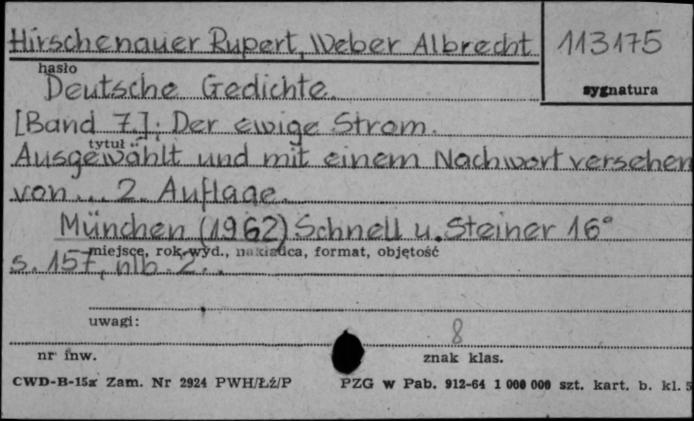 Hirschenauer Rupert, Weber Albrecht 113175
hasło
sygnatura
Deutsche Gedichte.
[Band 7.]: Der ewige Strom.
tytuł
Ausgewählt und mit einem Nachwort versehen
von ... 2. Auflage.
München (1962) Schnell u. Steiner 16°
miejsce, rok wyd., nakładca, format, objętość
s. 157, nlb. 2.
uwagi:
8
nr inw. znak klas.
CWD-B-15x Zam. Nr 2924 PWH/Łź/P PZG w Pab. 912-64 1 000 000 szt. kart. b. kl. 5